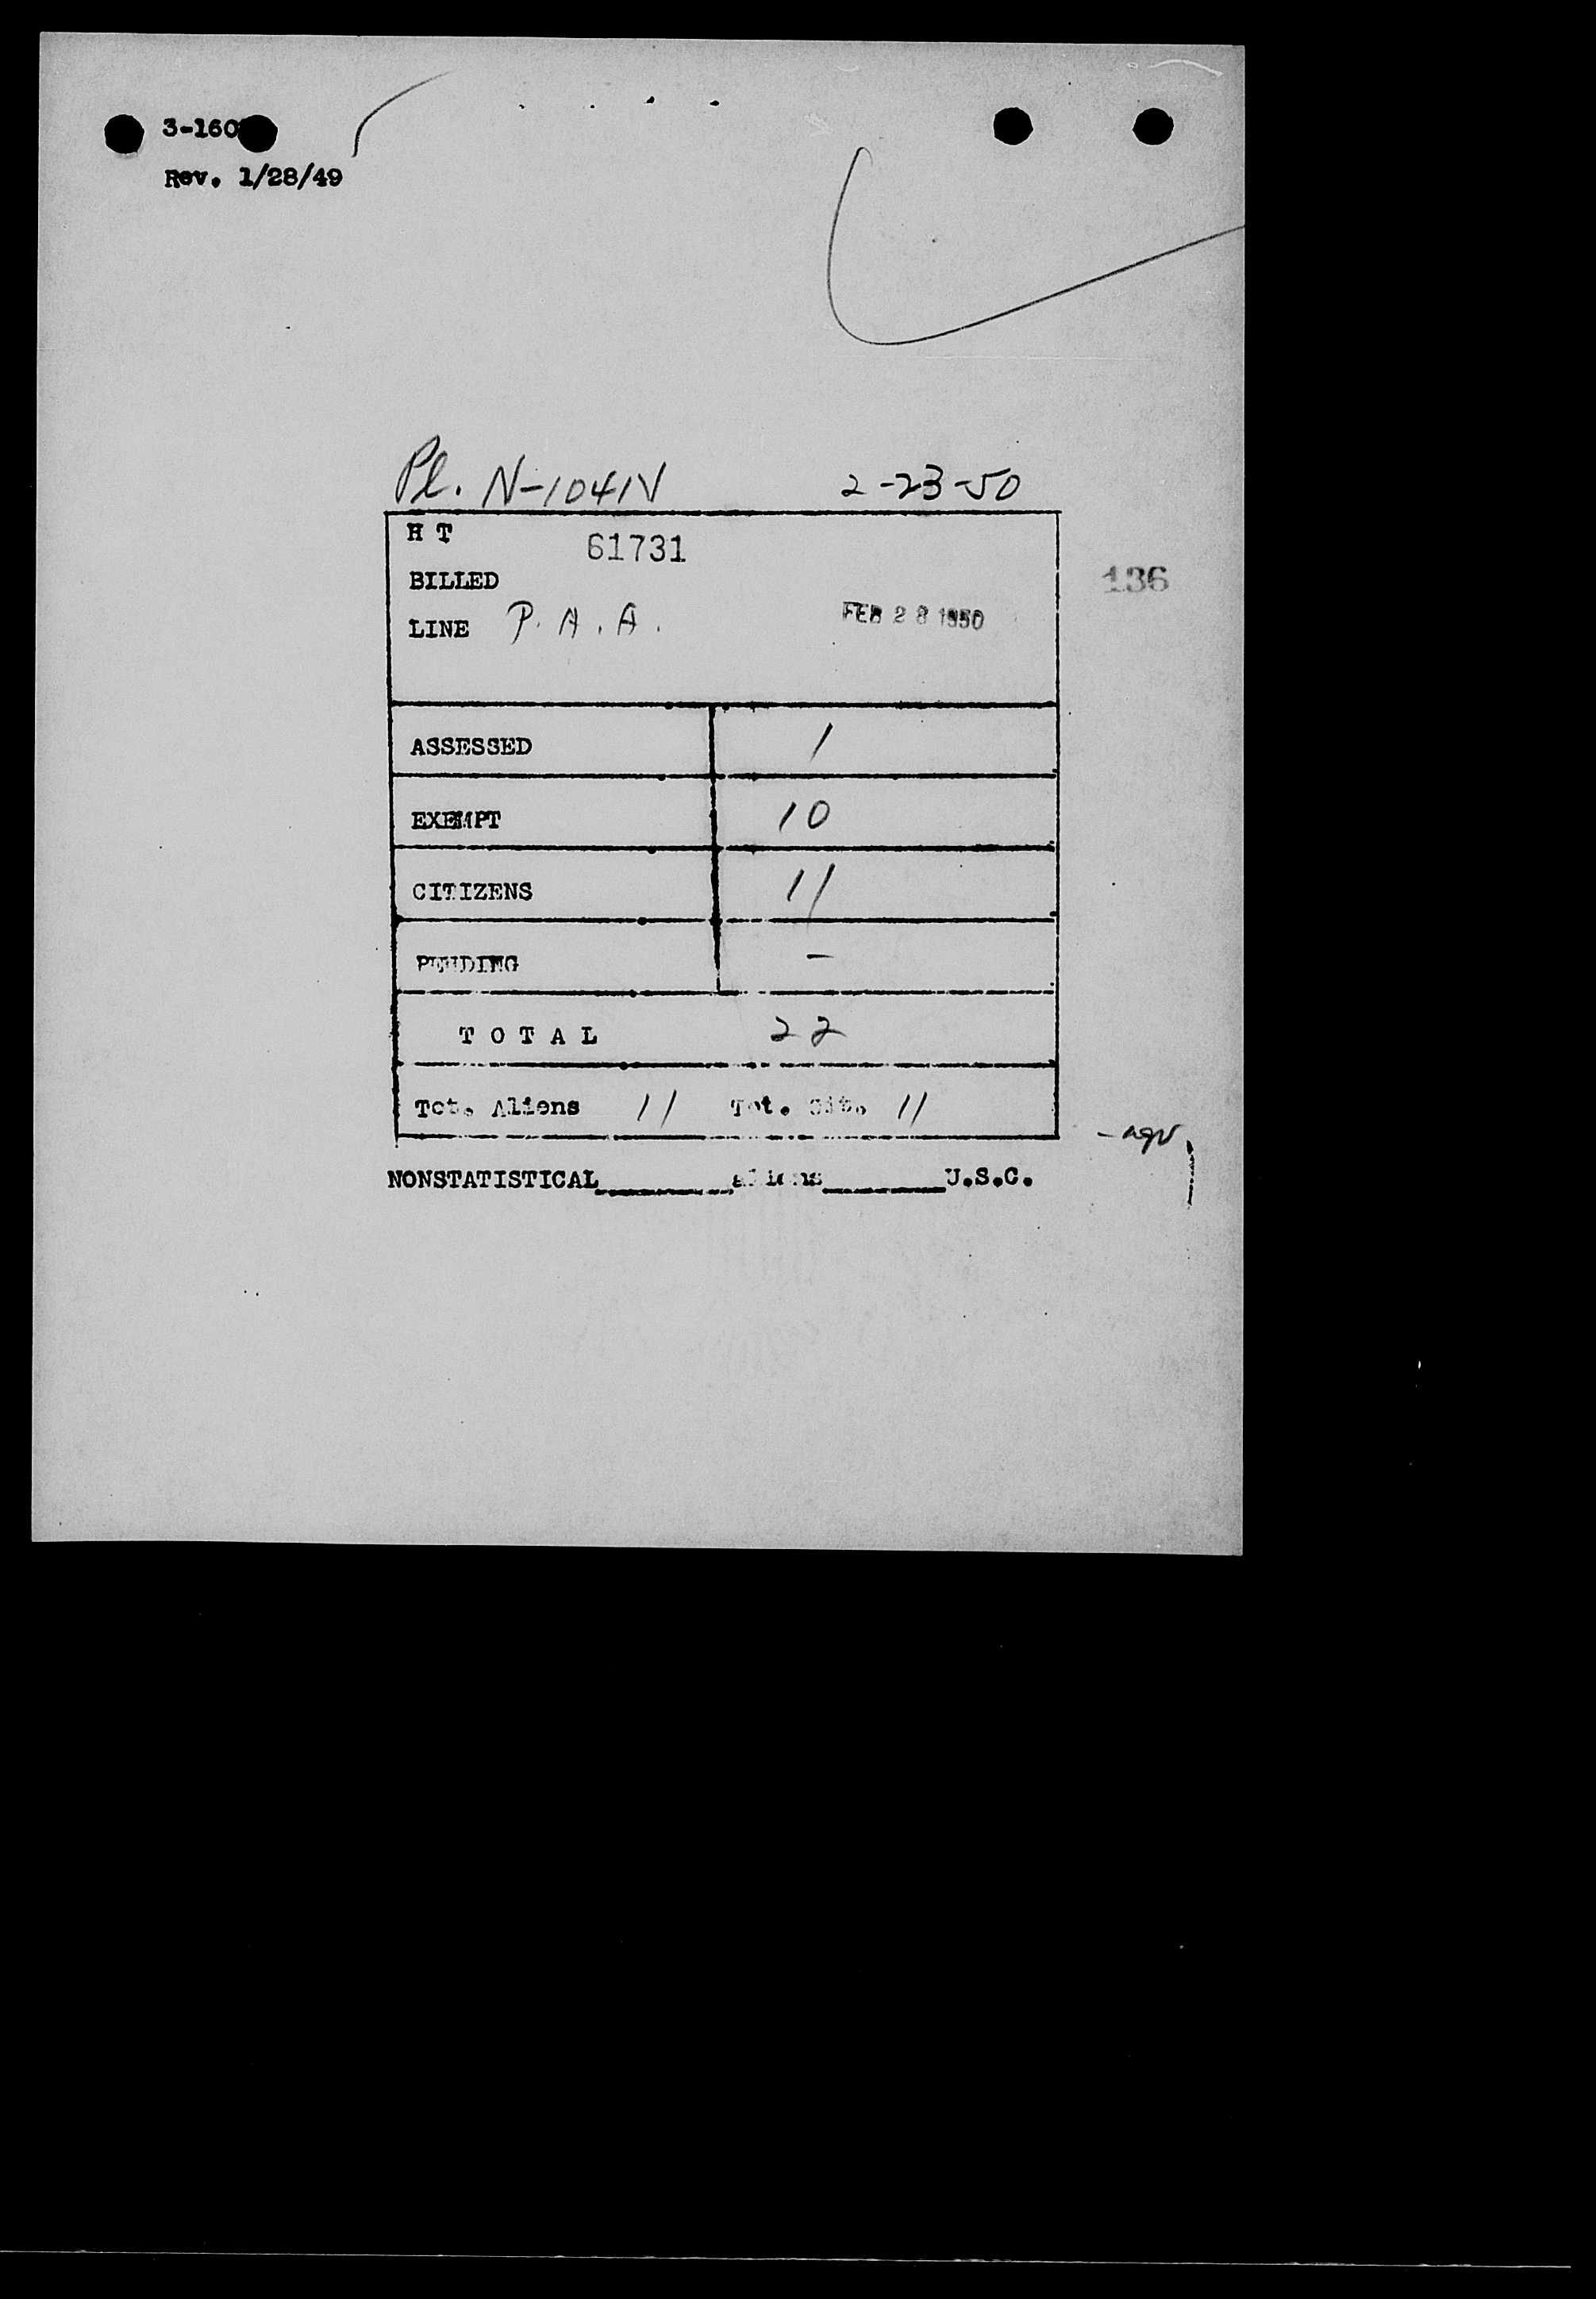 3-160
Rev. 1/28/49
Pl. N-1041V 2-23-50
H T 61731
BILLED
136
LINE P. A. A. FEB 28 1950
ASSESSED 1
EXEMPT 10
CITIZENS 11
PENDING -
T O T A L 22
Tot. Aliens 11 Tot. Cit. 11
NONSTATISTICAL________aliens________U.S.C.